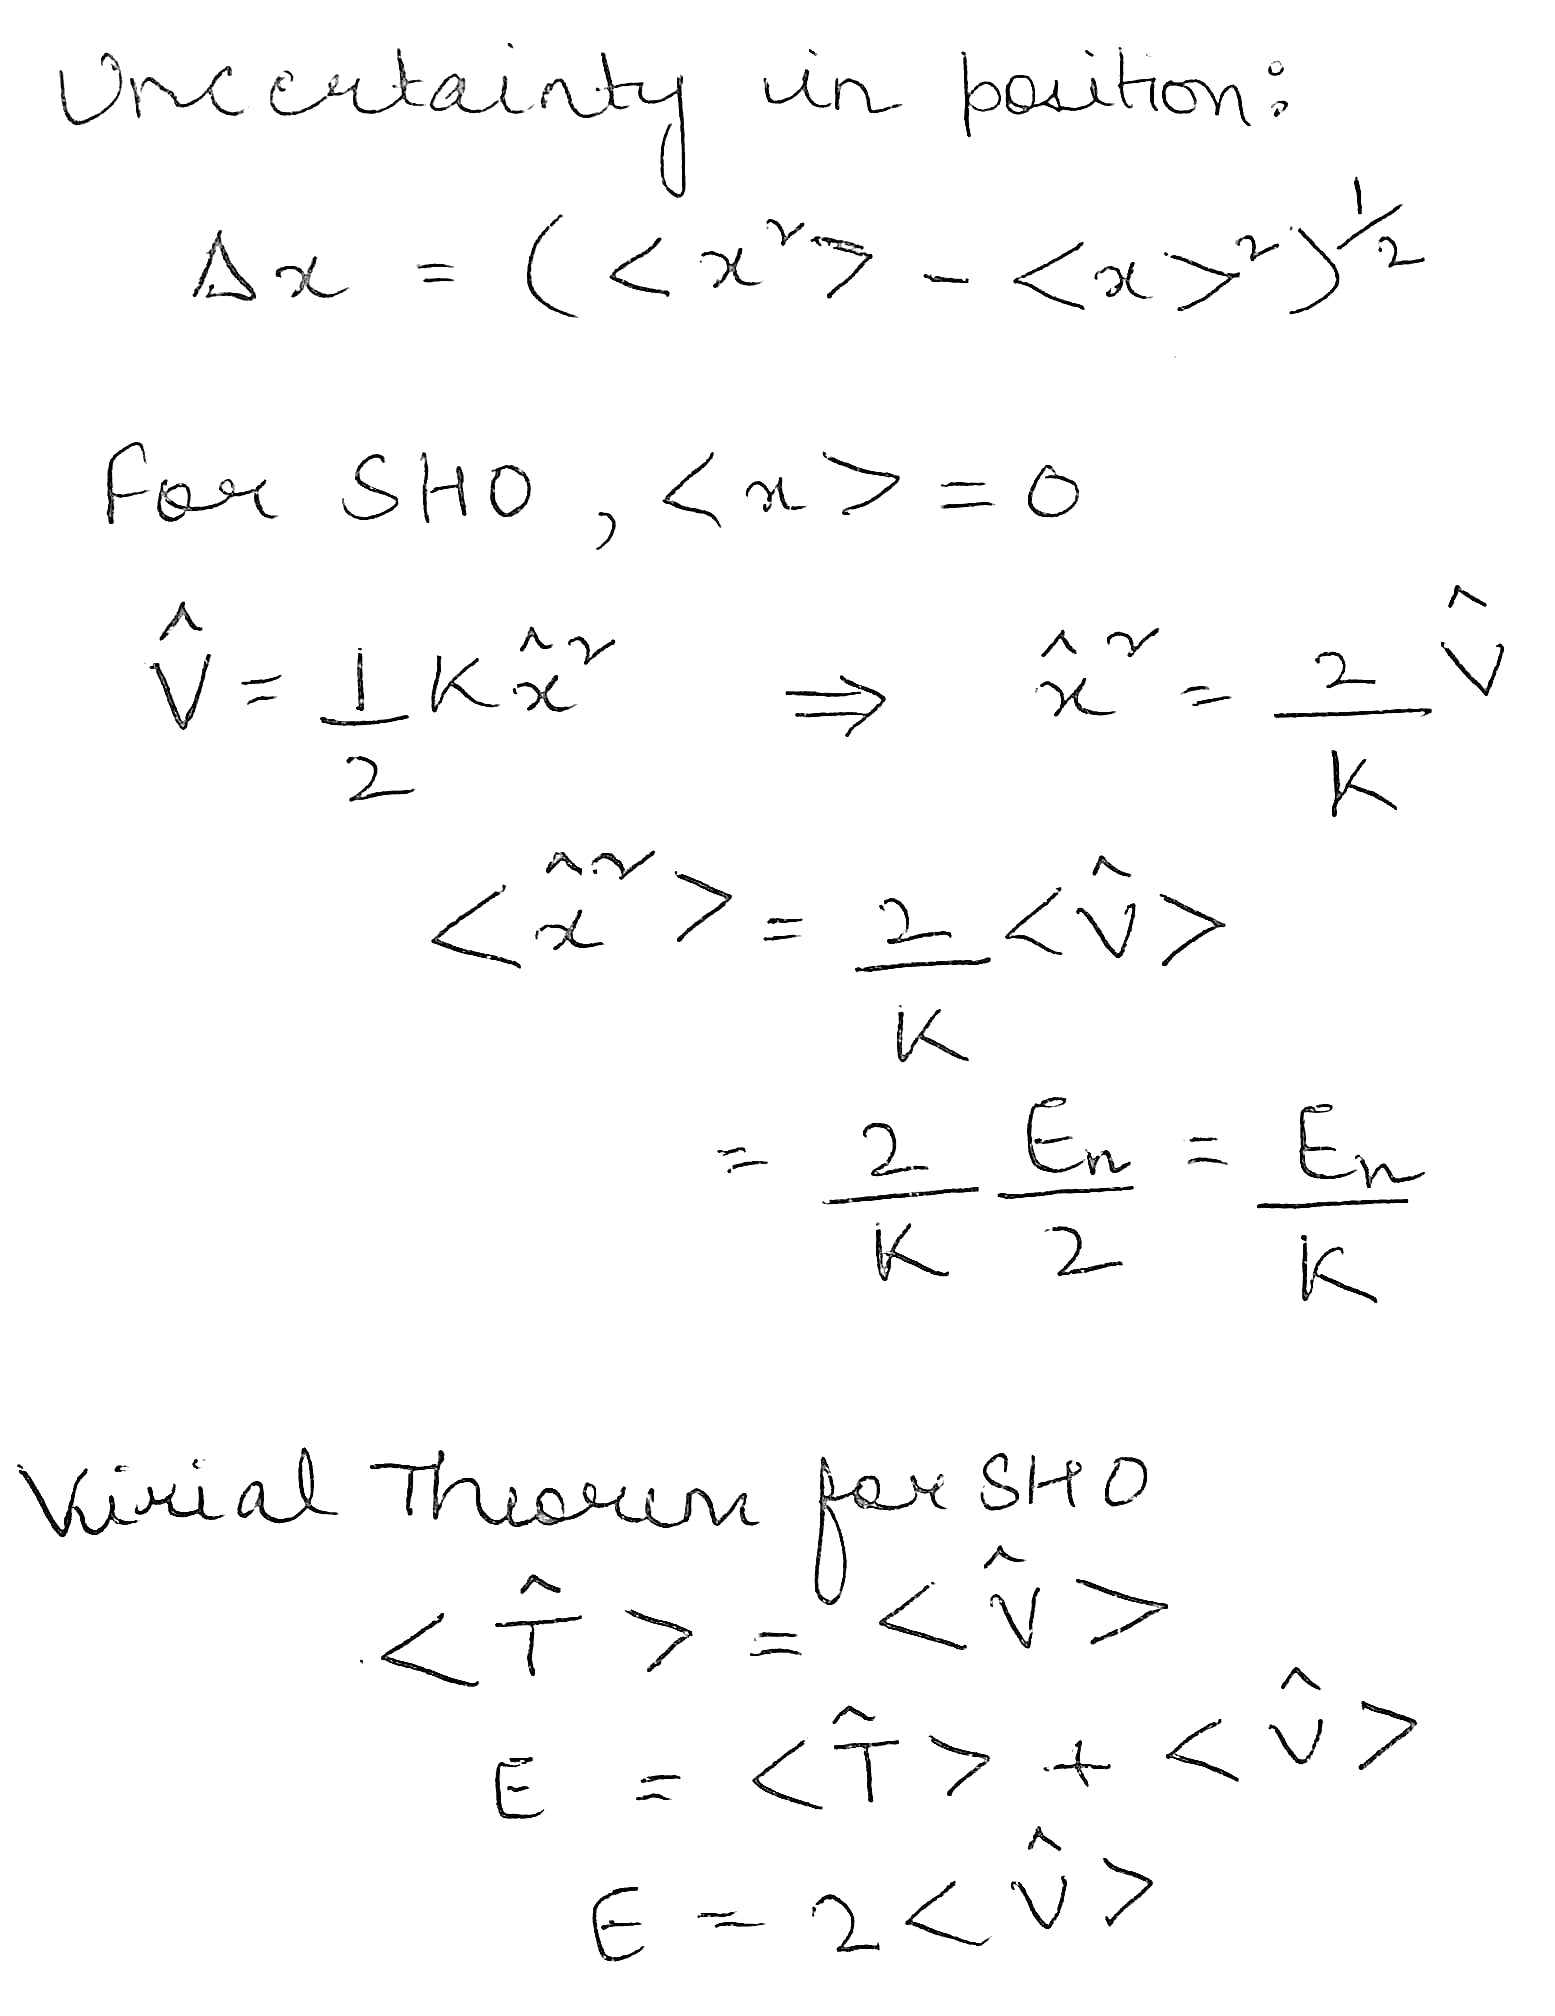 Uncertainty in position:
Δx = (<x²> - <x>²)^1/2
For SHO, <x> = 0
V̂ = 1/2 K x̂² ⇒ x̂² = 2/K V̂
<x̂²> = 2/K <V̂>
= 2/K En/2 = En/K
Virial Theorem for SHO
<T̂> = <V̂>
E = <T̂> + <V̂>
E = 2<V̂>